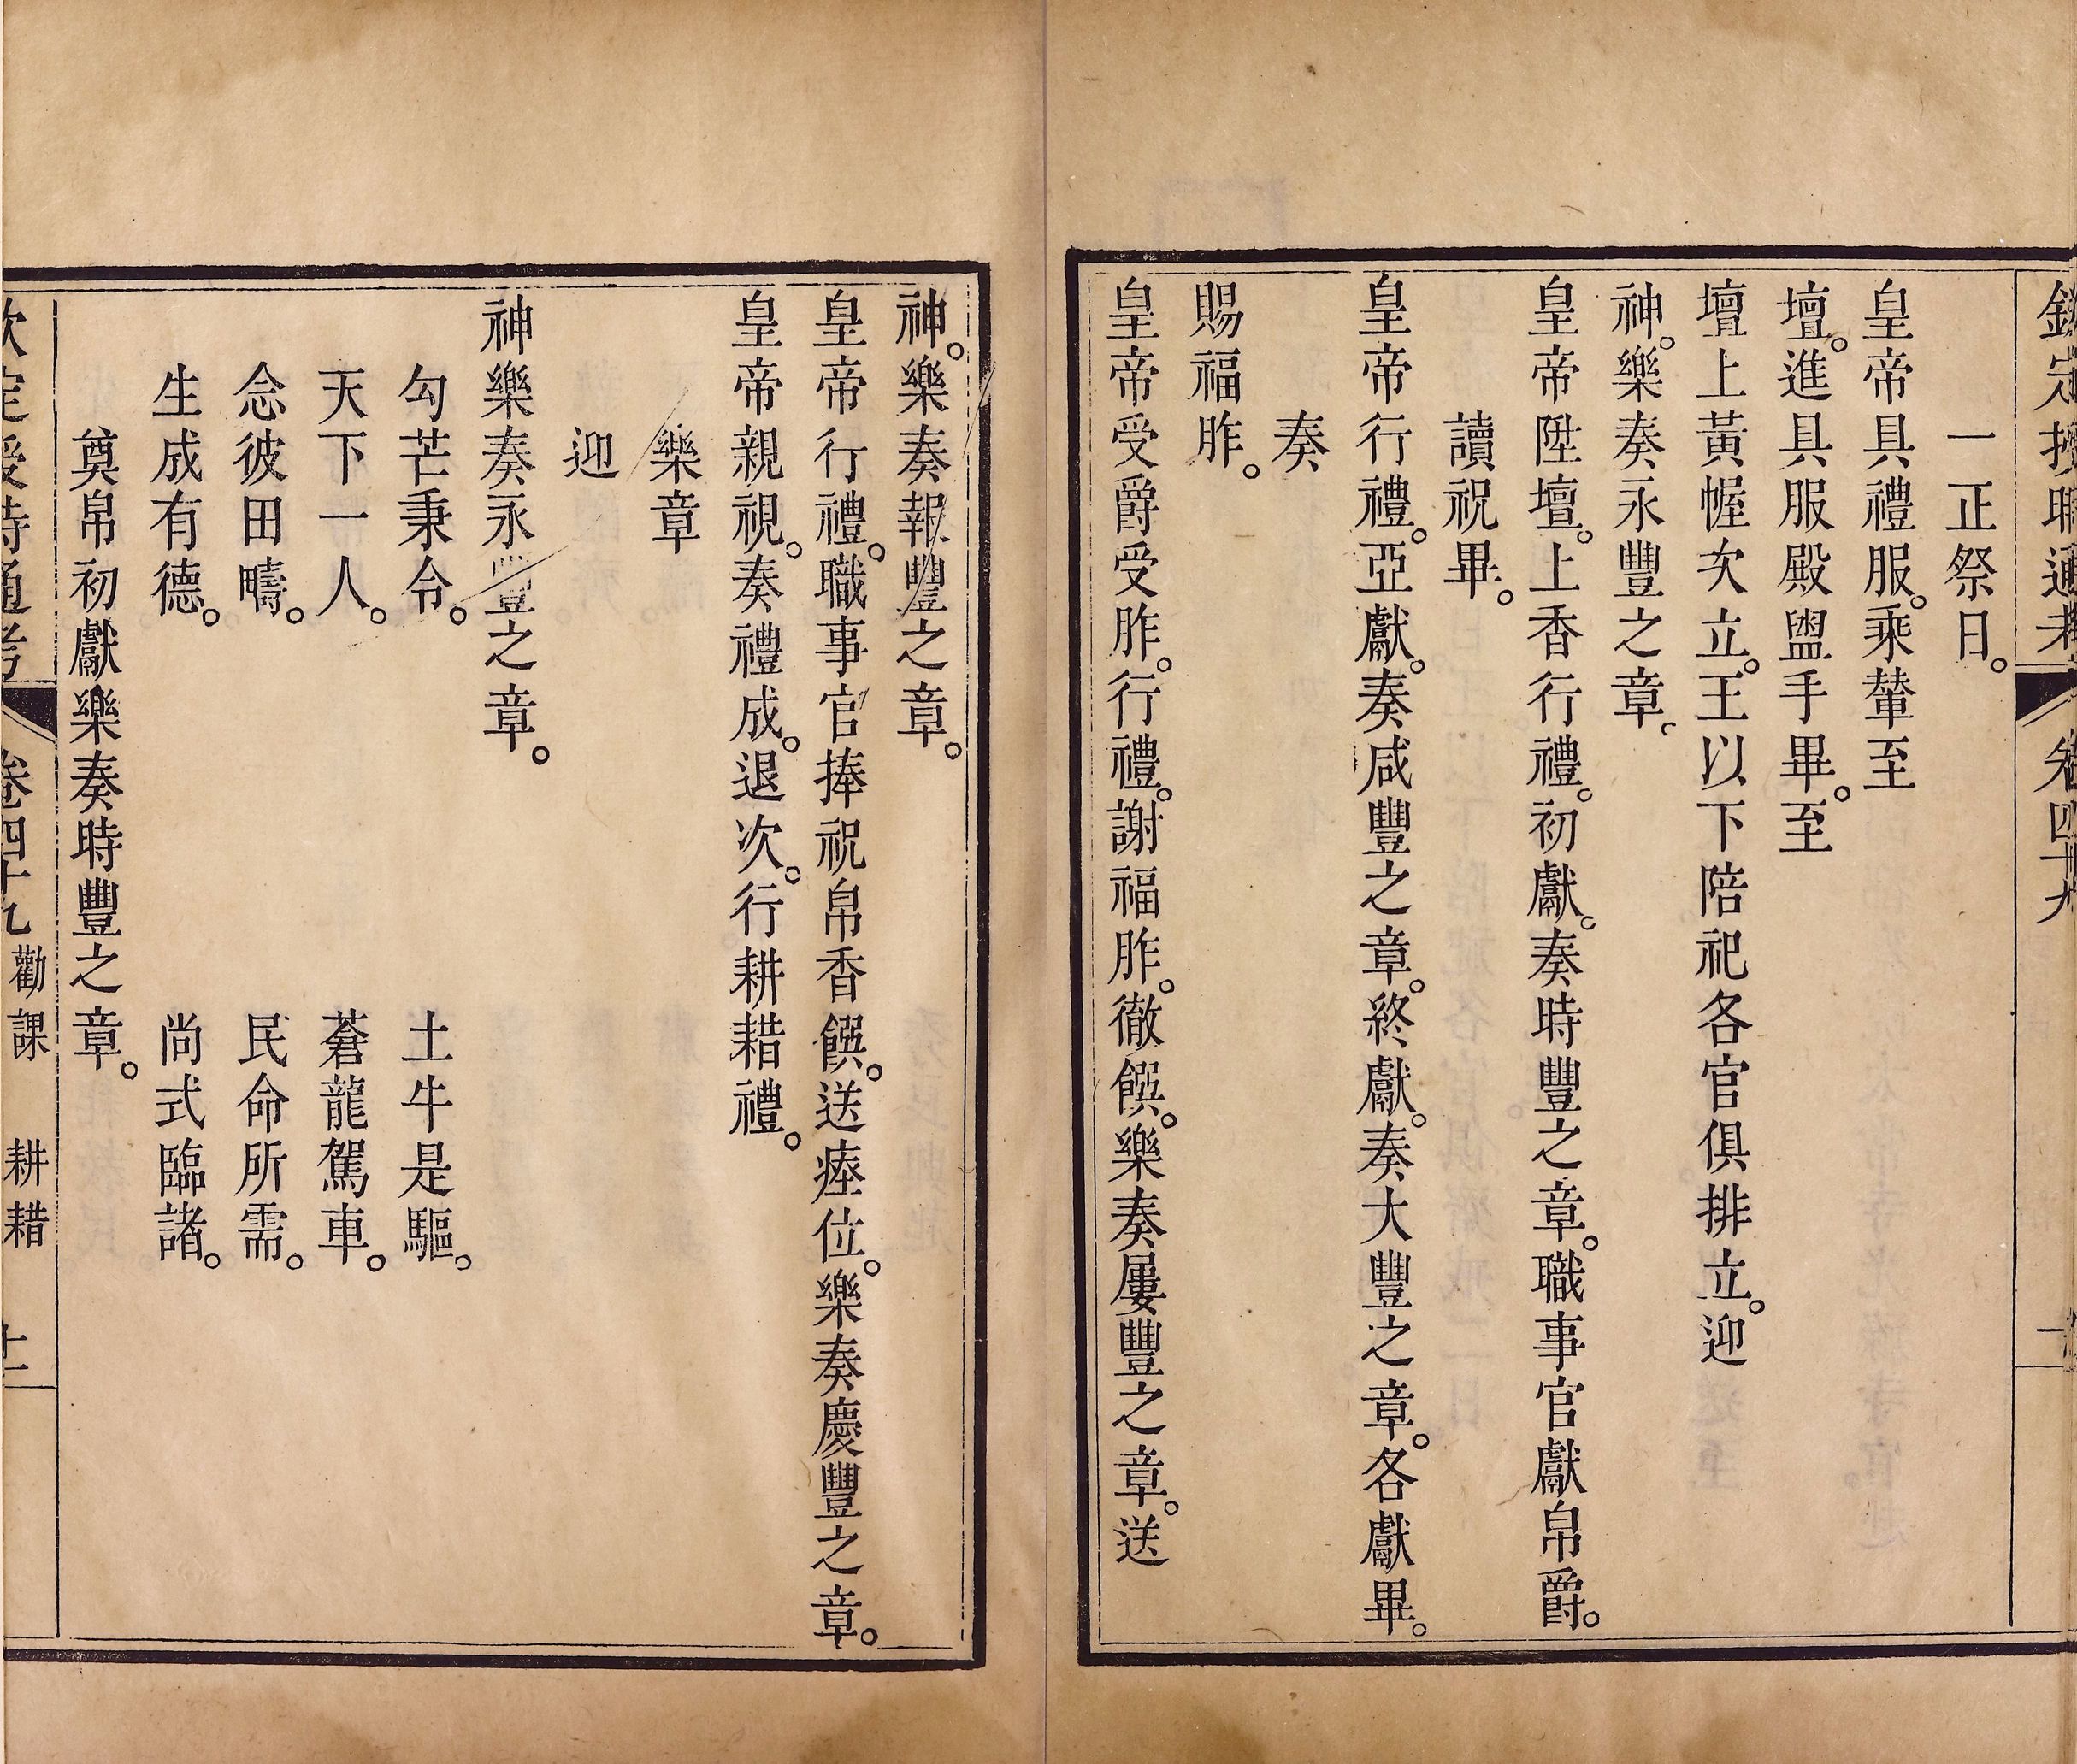 欽定授時通考 卷四十九
一正祭日。
皇帝具禮服。乘輦至
壇。進具服殿盥手畢。至
壇上黃幄次立。王以下陪祀各官俱排立。迎
神。樂奏永豐之章。
皇帝陞壇。上香行禮。初獻。奏時豐之章。職事官獻帛爵。
讀祝畢。
皇帝行禮。亞獻。奏咸豐之章。終獻。奏大豐之章。各獻畢。
奏
賜福胙。
皇帝受爵受胙。行禮。謝福胙。徹饌。樂奏屢豐之章。送
神。樂奏報豐之章。
皇帝行禮。職事官捧祝帛香饌。送瘞位。樂奏慶豐之章。
皇帝親視。奏禮成。退次。行耕耤禮。
樂章
迎
神樂奏永豐之章。
勾芒秉令。 土牛是驅。
天下一人。 蒼龍駕車。
念彼田疇。 民命所需。
生成有德。 尚式臨諸。
奠帛初獻樂奏時豐之章。
欽定授時通考 卷四十九 勸課 耕耤 十一